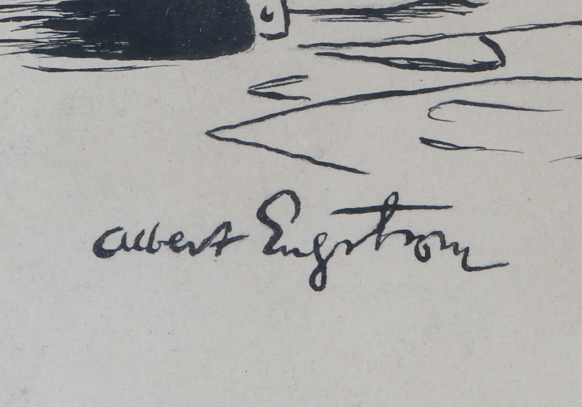 Albert Engstrom